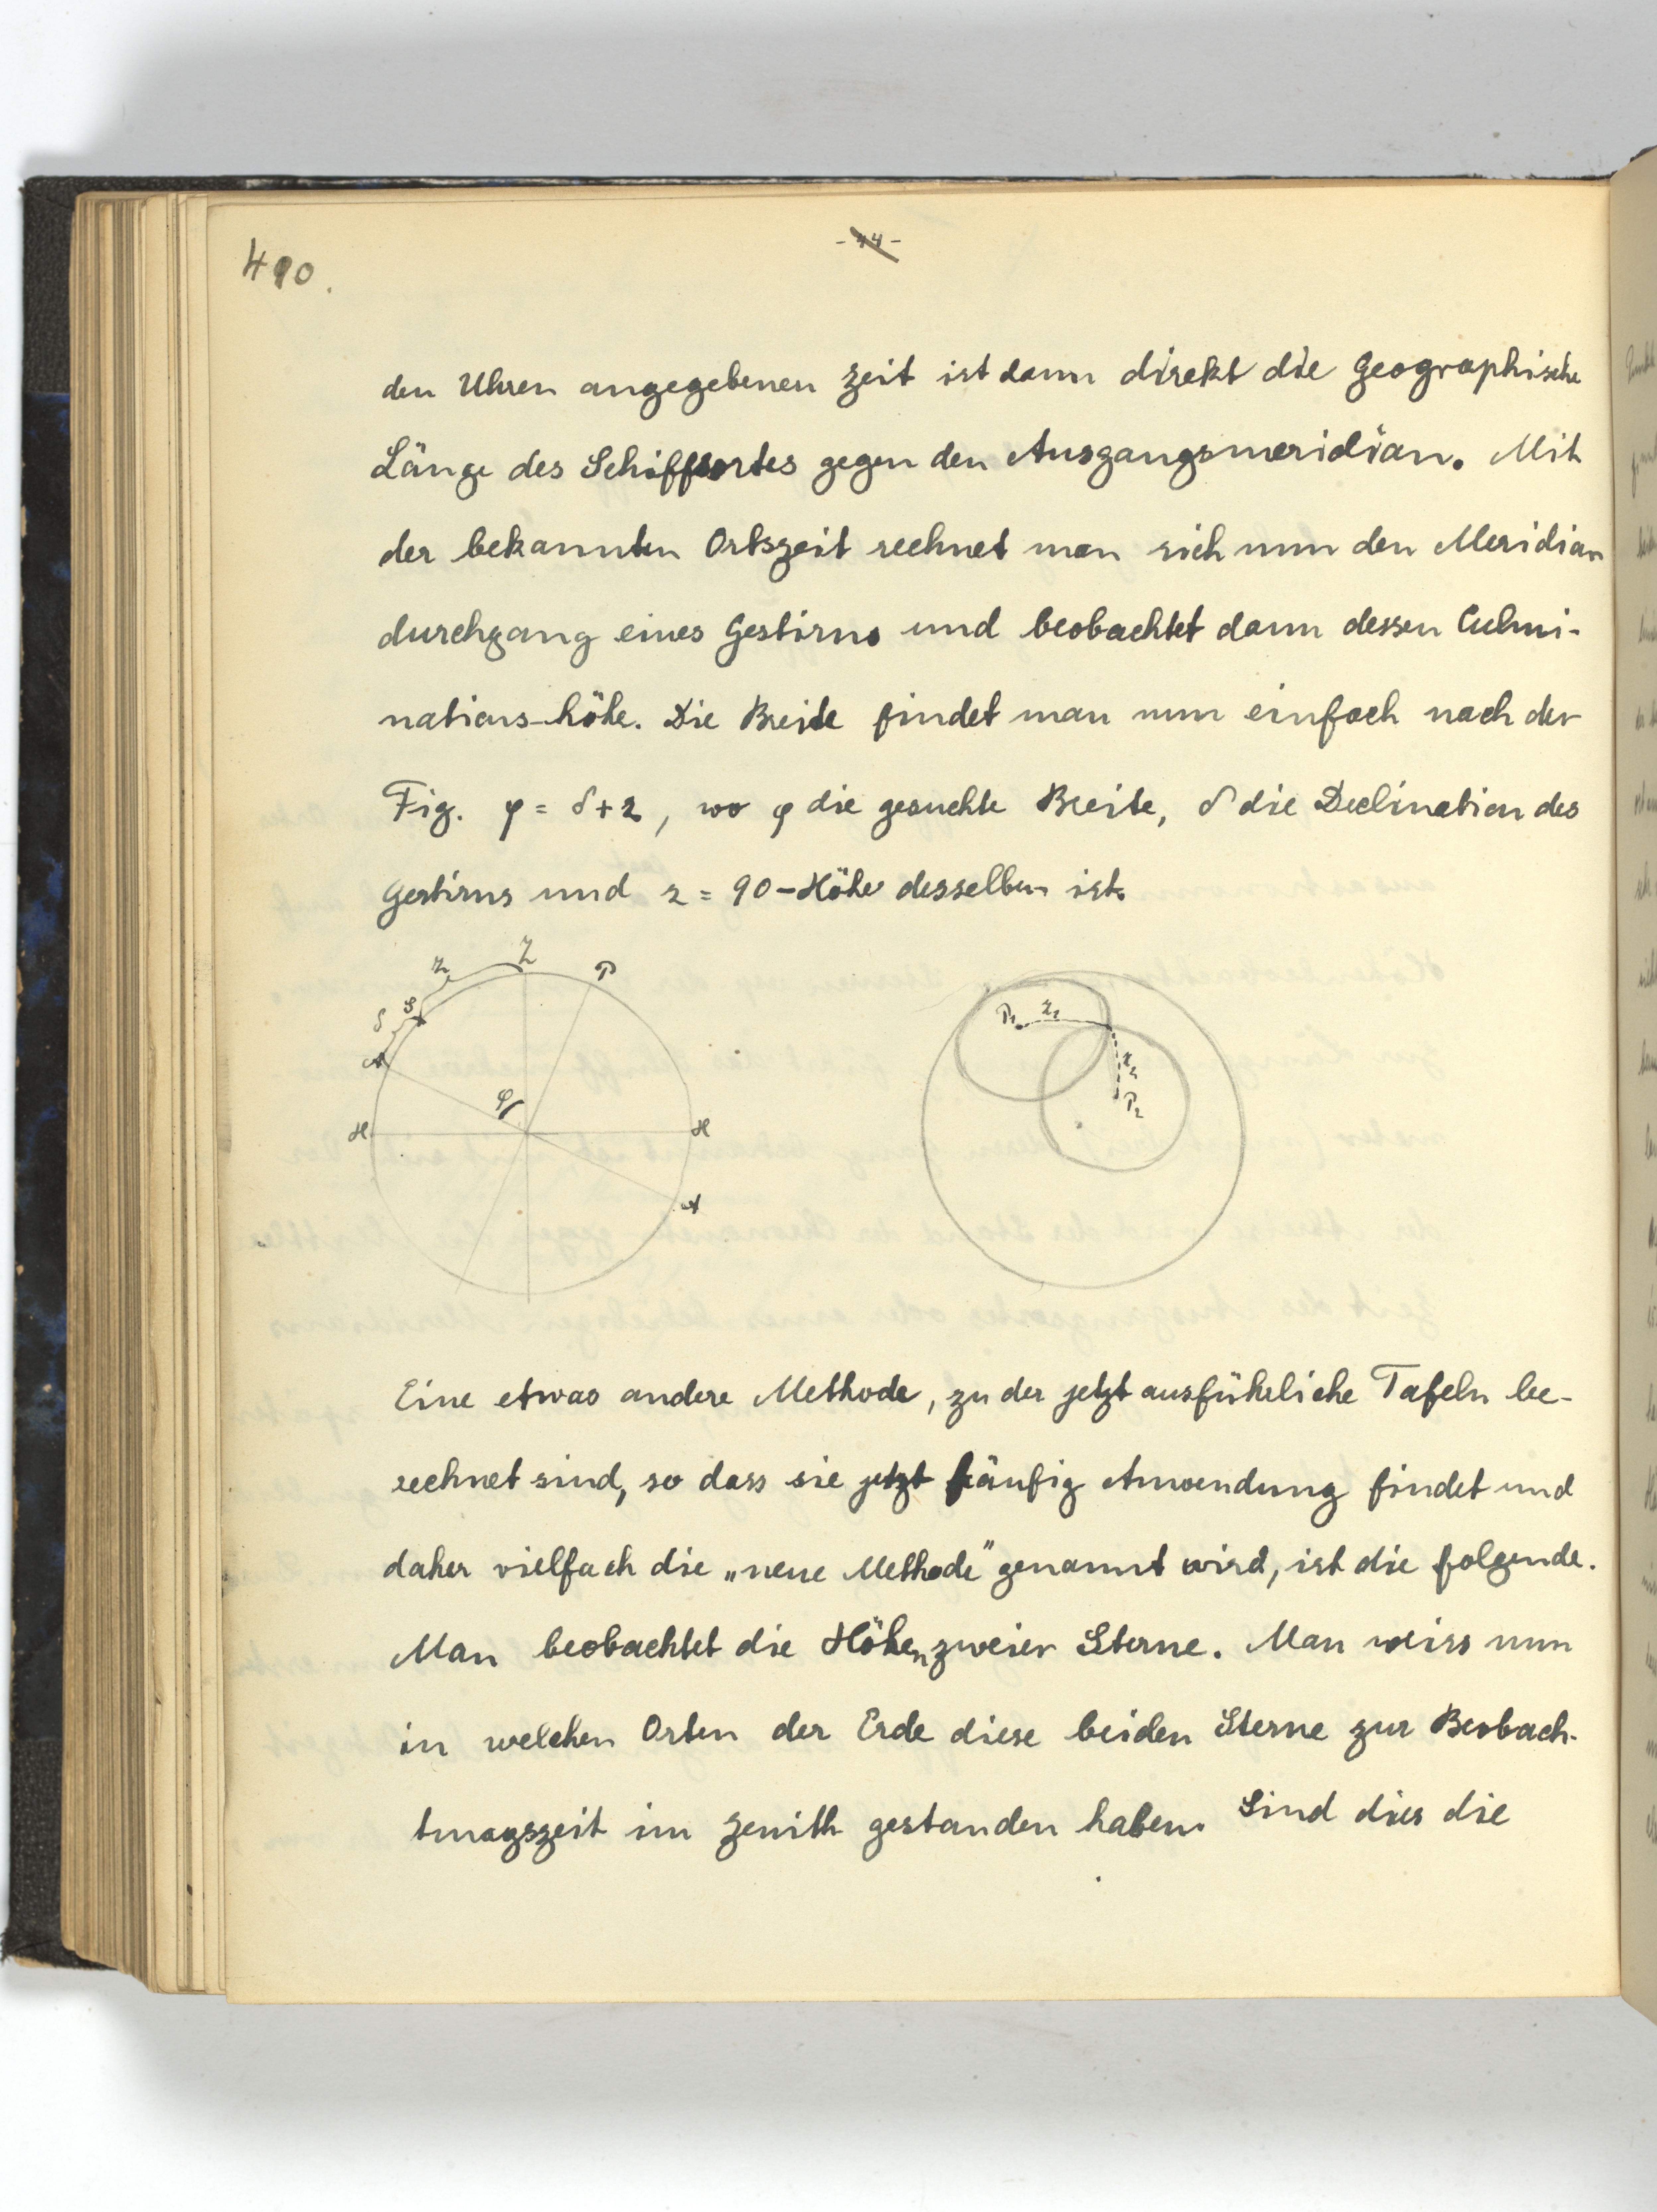 490.
- 44 -
den Uhren angegebenen Zeit ist dann direkt die geographische
Länge des Schiffsortes gegen den Ausgangsmeridian. Mit
der bekannten Ortszeit rechnet man sich nun den Meridian
durchgang eines Gestirns und beobachtet dann dessen Culmi-
nations-höhe. Die Breite findet man nun einfach nach der
Fig. φ = δ + z, wo φ die gesuchte Breite, δ die Declination des
Gestirns und z = 90 - Höhe desselben ist.
z Z P
δ S
A
φ
H H
A
P₁ z₁
z₂
P₂
Eine etwas andere Methode, zu der jetzt ausführliche Tafeln be-
rechnet sind, so dass sie jetzt häufig Anwendung findet und
daher vielfach die „neue Methode" genannt wird, ist die folgende.
Man beobachtet die Höhen zweier Sterne. Man weiss nun
in welchen Orten der Erde diese beiden Sterne zur Beobach-
tungszeit im Zenith gestanden haben. Sind dies die